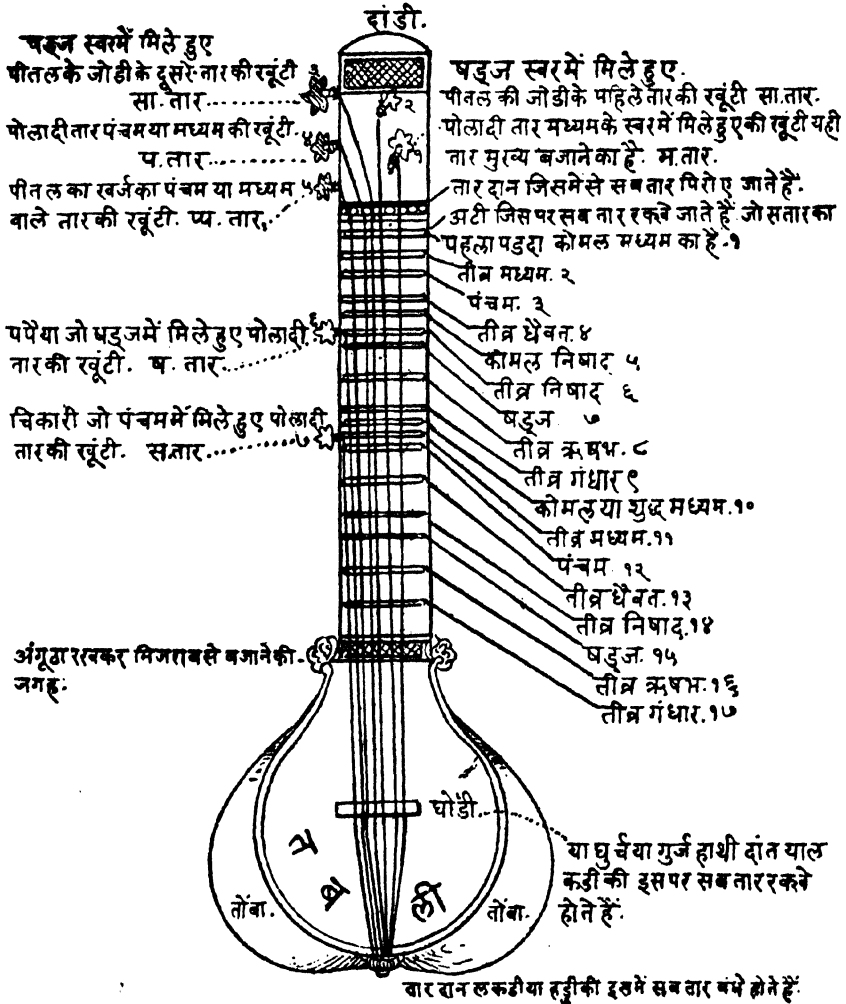 दांडी.
षड्ज स्वरमें मिले हुए
पीतलके जोडीके दूसरे तारकी रवूंटी ३
सा. तार
पोलादी तार पंचम या मध्यम की रवूंटी. ४
प. तार
पीतल का रवर्जका पंचम या मध्यम ५
वाले तारकी रवूंटी. प्प. तार.
पपैया जो षड्जमें मिले हुए पोलादी ६
तारकी रवूंटी. ष. तार
चिकारी जो पंचममें मिले हुए पोलादी
तारकी रवूंटी. स. तार ७
अंगूठा ररवकर मिजराबसे बजानेकी
जगह.
२
१
षड्ज स्वरमें मिले हुए.
पीतल की जोडीके पहिले तारकी रवूंटी सा. तार.
पोलादी तार मध्यमके स्वरमें मिले हुएकी रवूंटी यही
तार मुरव्य बजानेका है. म. तार.
तार दान जिसमेसे सब तार पिरोए जाते हैं.
अटी जिसपर सब तार ररक्वे जाते हैं जो सतारका
पहला पडुदा कोमल मध्यम का है. १
तीव्र मध्यम. २
पंचम. ३
तीव्र धैवत. ४
कोमल निषाद ५
तीव्र निषाद् ६
षड्ज ७
तीव्र ऋषभ. ८
तीव्र गंधार ९
कोमल या शुद्ध मध्यम. १०
तीव्र मध्यम. ११
पंचम १२
तीव्र धैवत. १३
तीव्र निषाद. १४
षड्ज. १५
तीव्र ऋषभ. १६
तीव्र गंधार. १७
घोंडी.
या घुर्च या गुर्ज हाथी दांत या ल
कडी की इसपर सब तार ररक्वे
होते हैं.
त ब ली
तोंबा.
तोंबा.
तार दान लकडी या हड्डी की इसमें सब तार बंधे होते हैं.